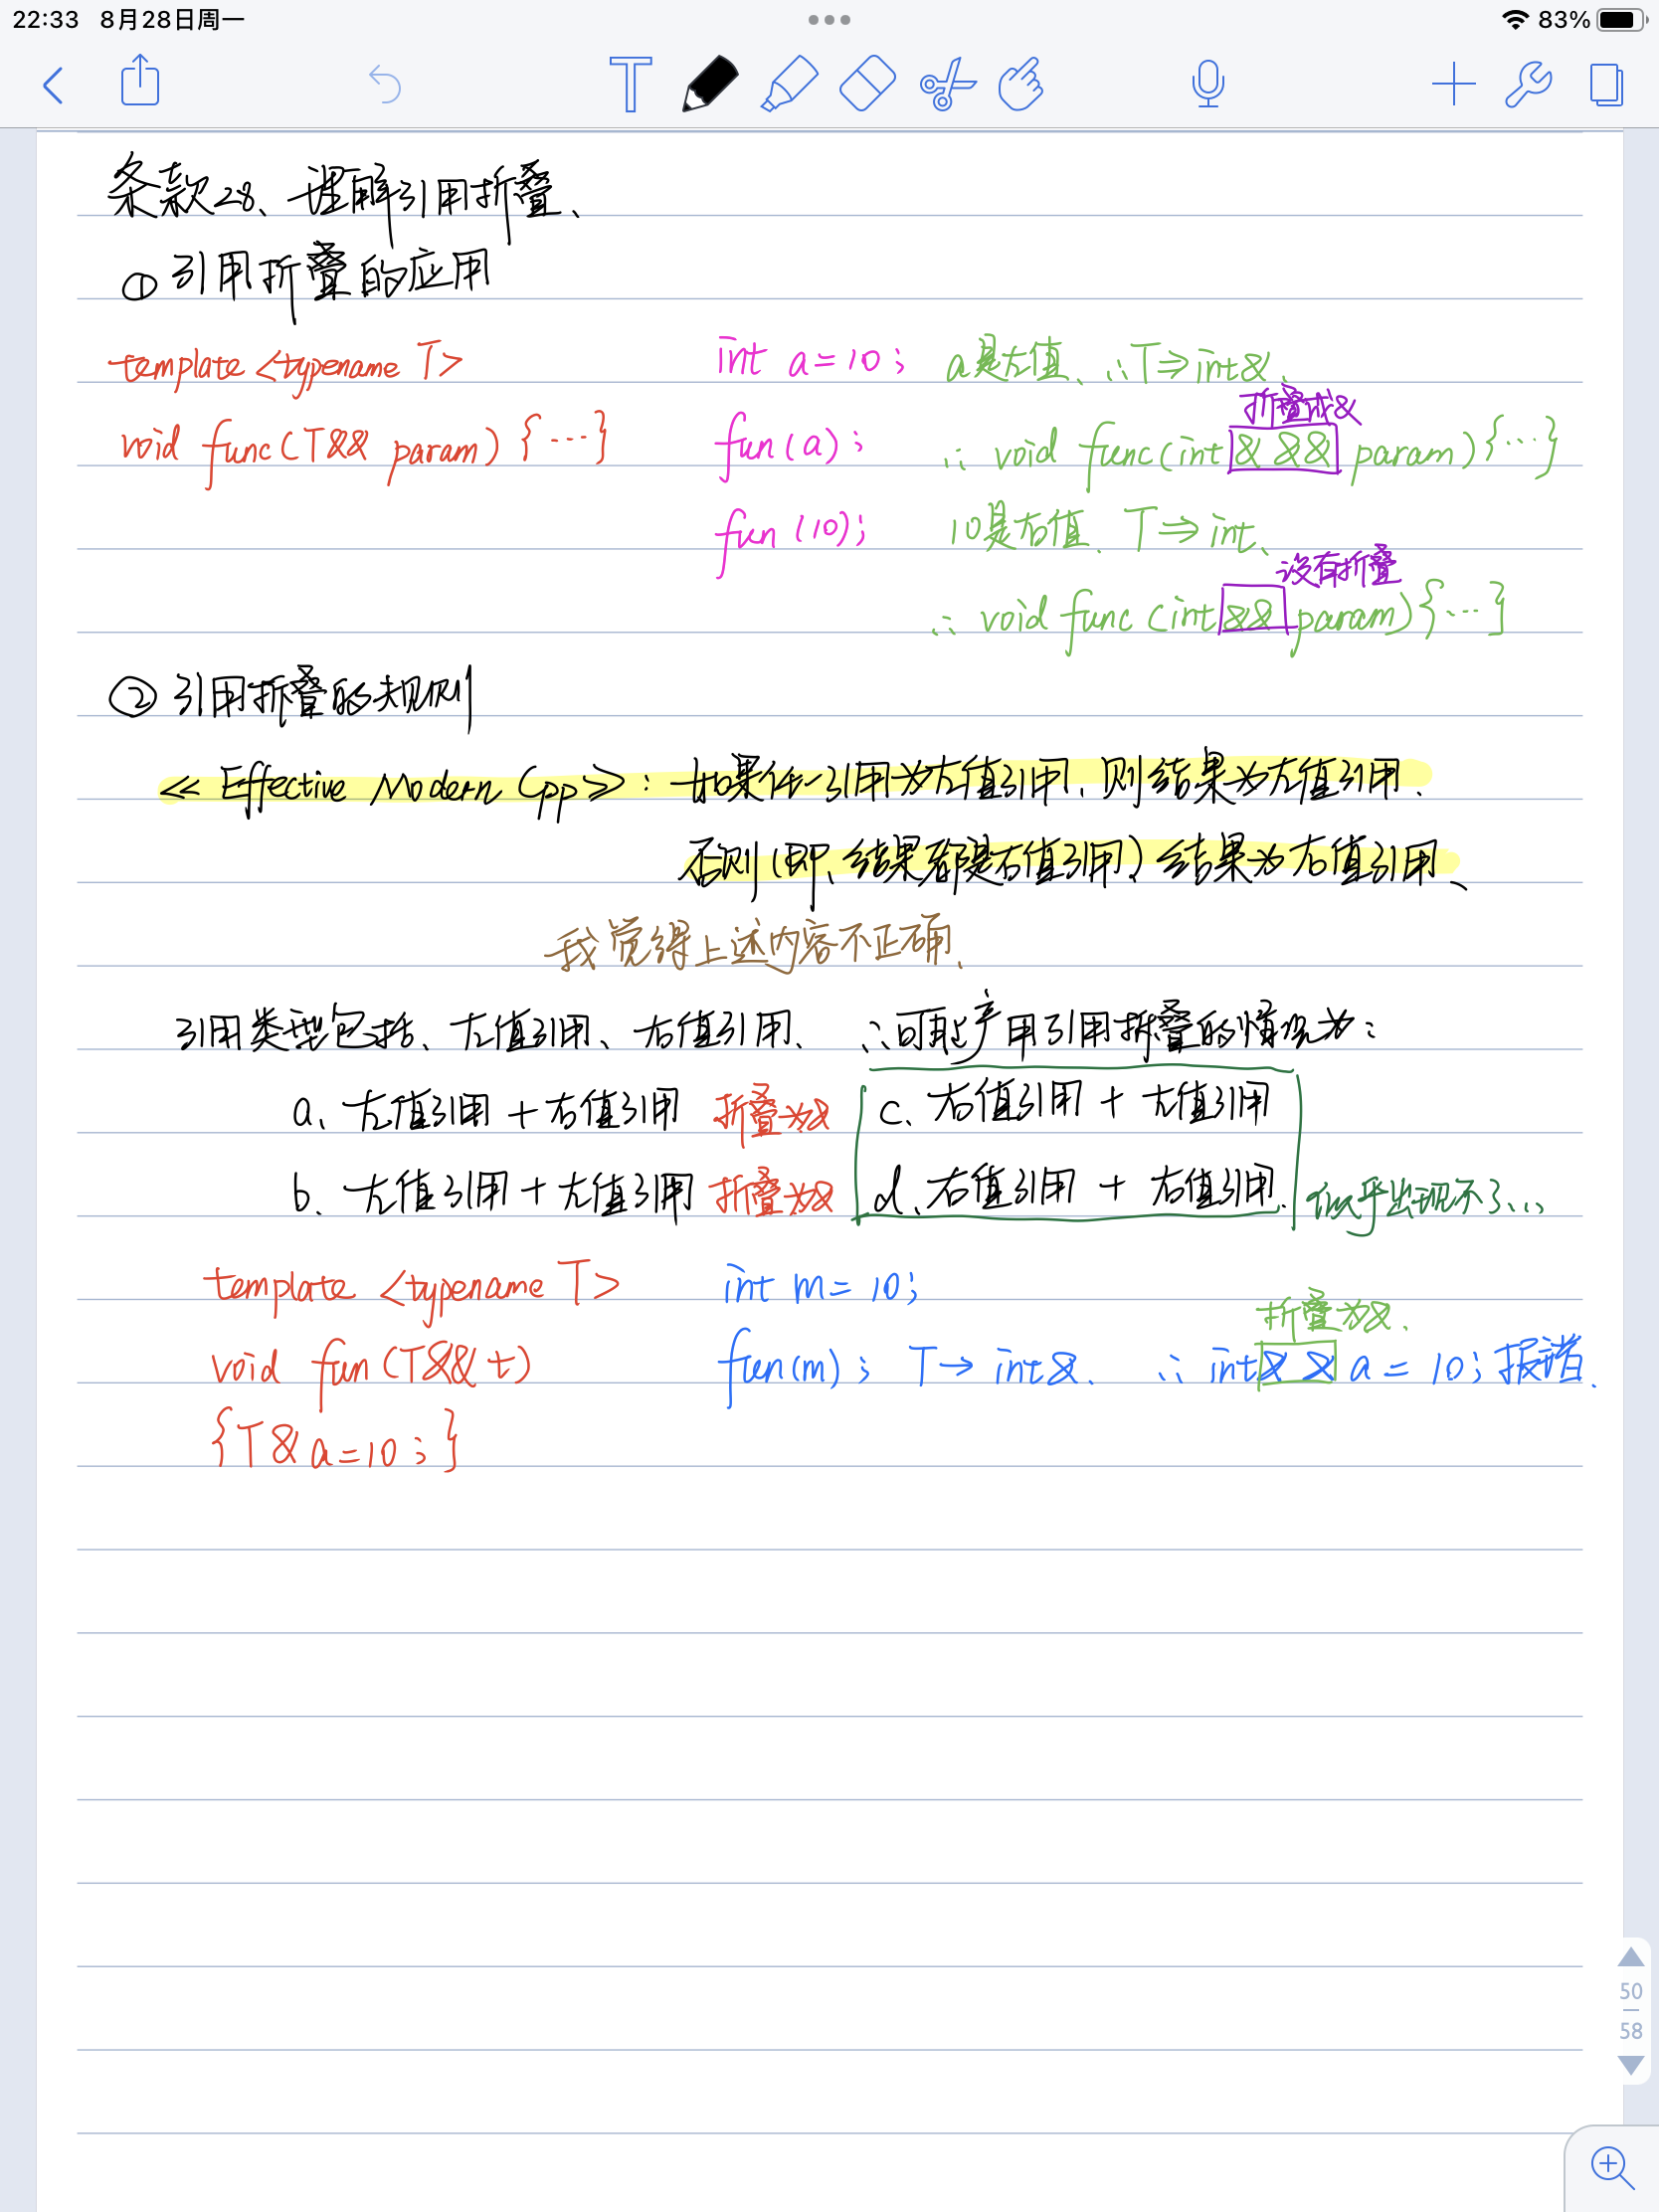 22:33 8月28日周一
83%
条款28、理解引用折叠、
① 引用折叠的应用
template <typename T> int a=10; a是左值、∴T⇒int&.
折叠成&
void func(T&& param) {…} fun(a); ∴ void func(int & && param){…}
fun(10); 10是右值、T⇒int、
没有折叠
∴ void func(int && param){…}
② 引用折叠的规则
≪Effective Modern Cpp≫: 如果任一引用为左值引用、则结果为左值引用.
否则(即、结果都是右值引用)结果为右值引用、
我觉得上述内容不正确、
引用类型包括、左值引用、右值引用、 ∴可能产用引用折叠的情况为:
a、左值引用+右值引用 折叠为& c、右值引用 + 左值引用
b、左值引用+左值引用 折叠为& d、右值引用 + 右值引用. 似乎出现不了...
template <typename T> int m= 10;
折叠为&.
void fun(T&& t) fun(m); T→ int&. ∴ int& & a = 10; 报错.
{T& a=10;}
50
58